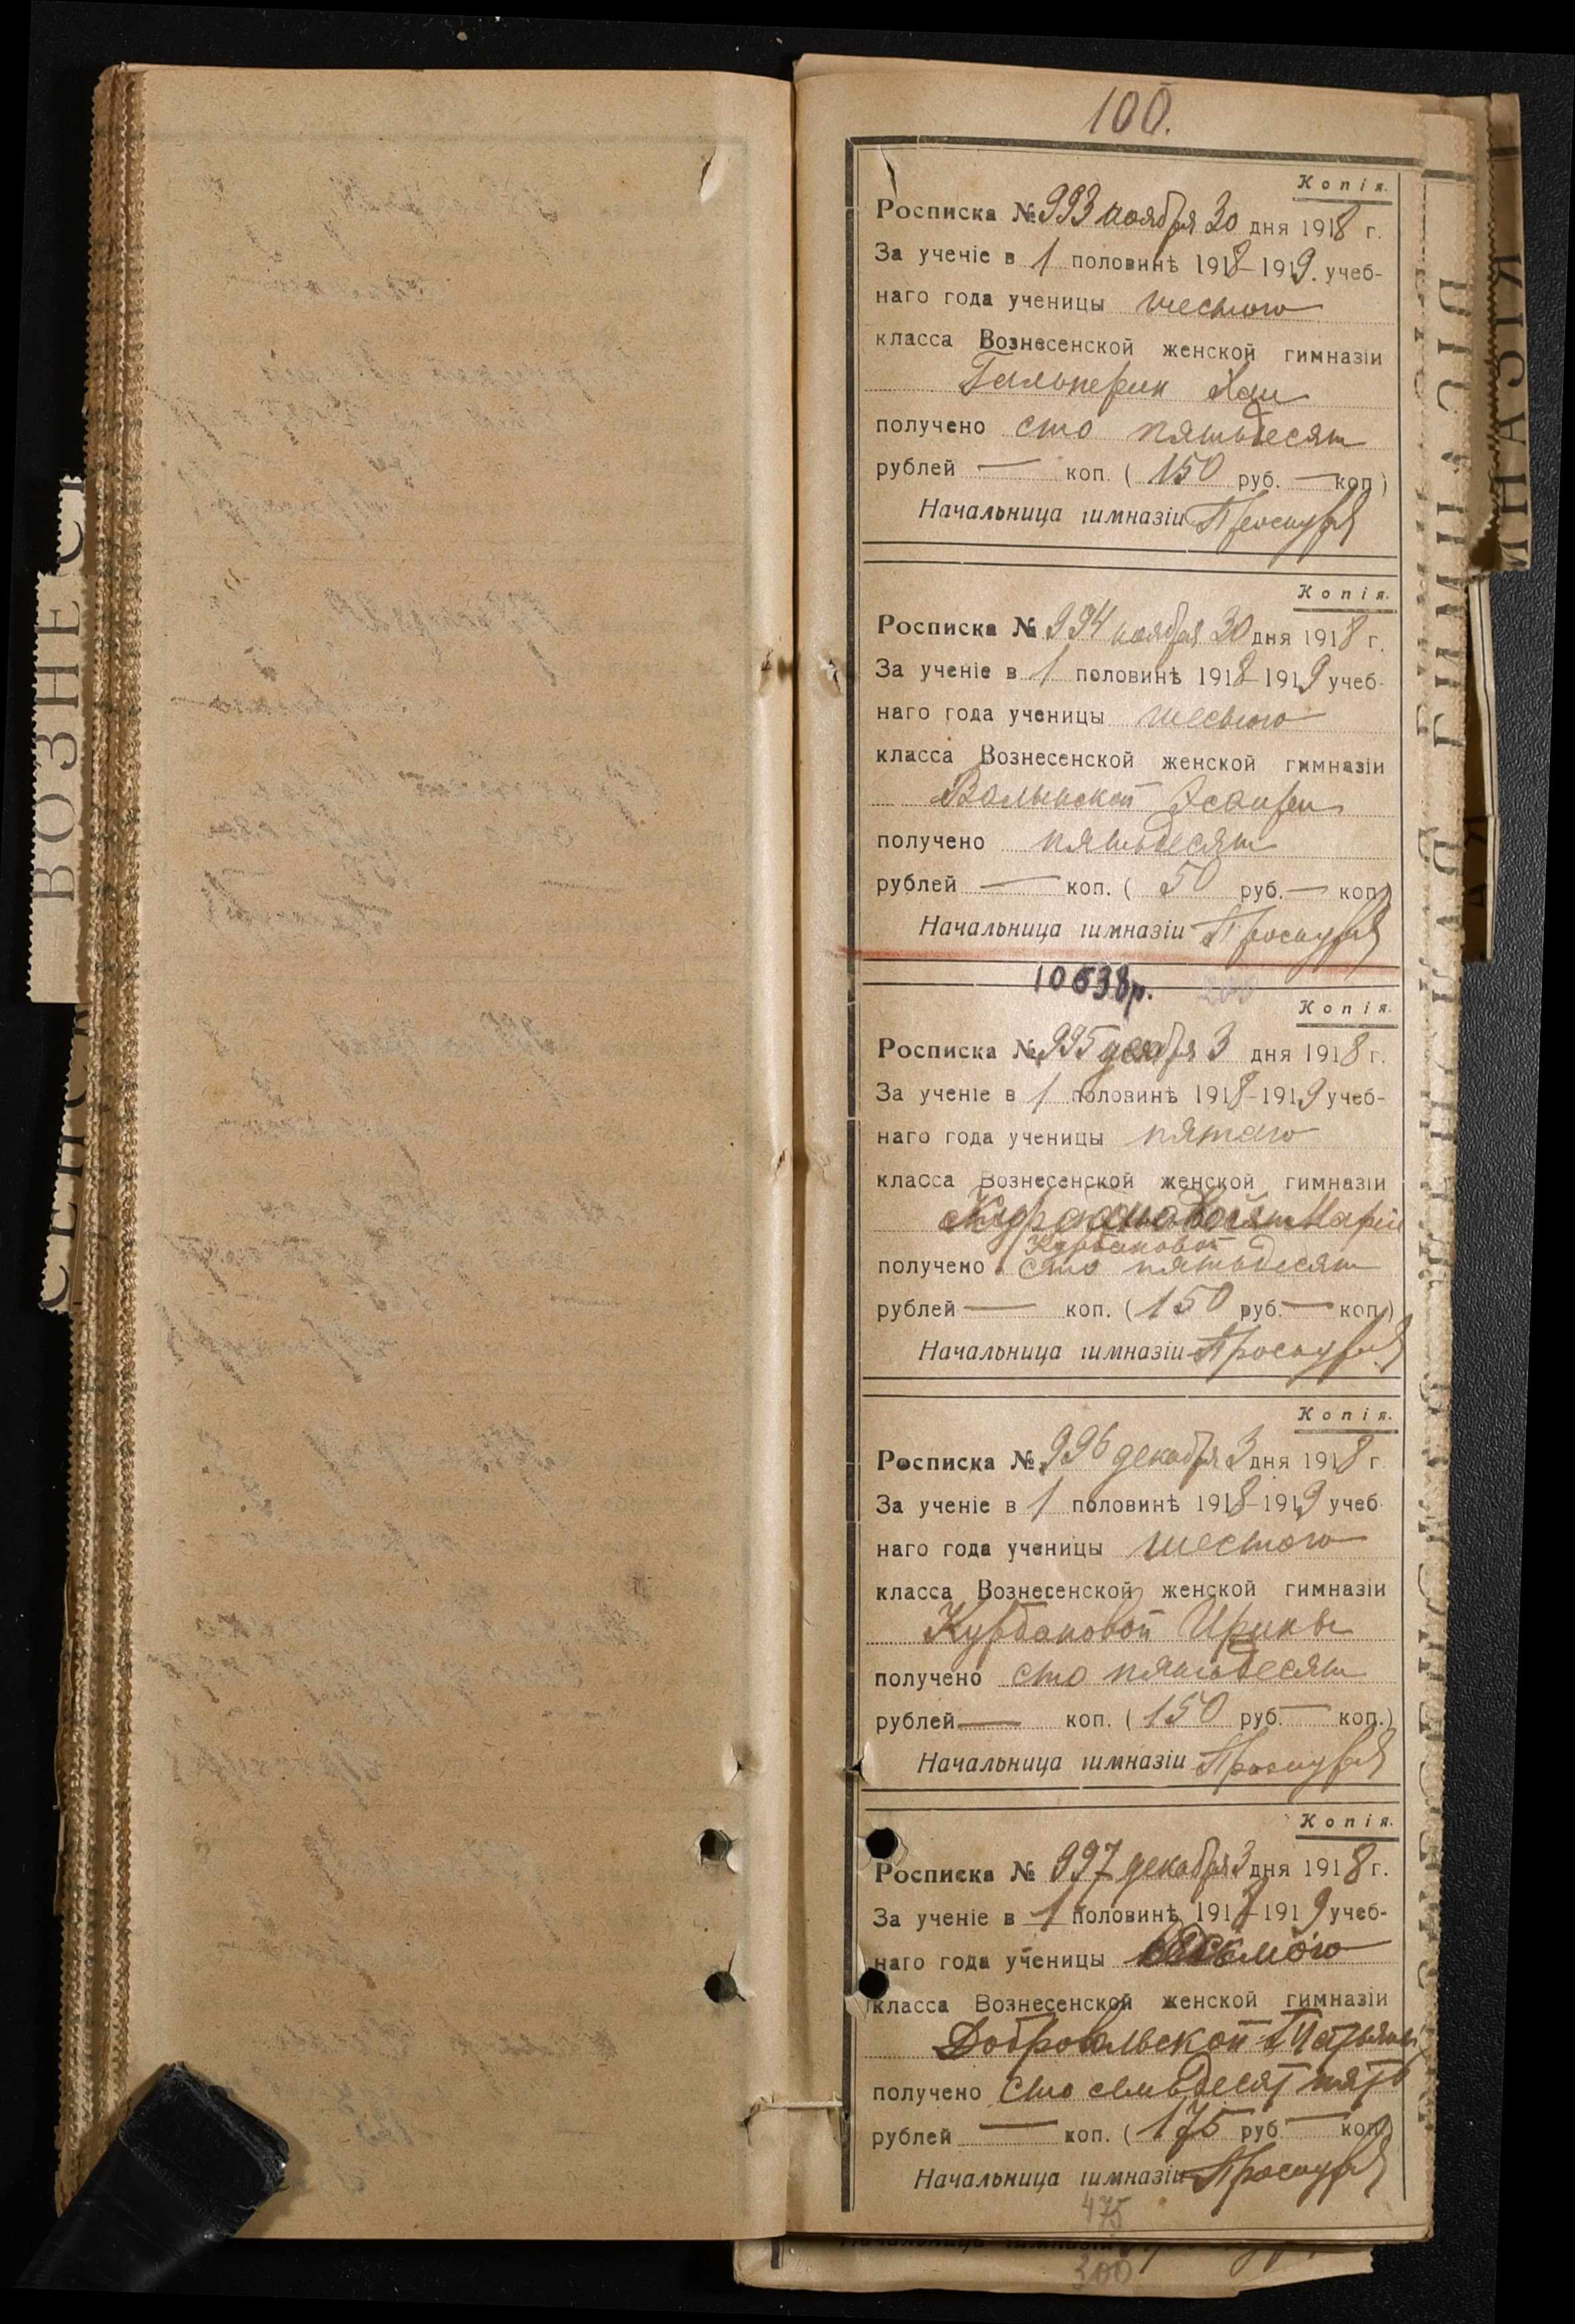 100.
Копія.
Росписка № 993 ноября 30 дня 1918 г.
За ученіе в 1 половинѣ 1918-1919. учеб-
наго года ученицы шестого
класса Вознесенской женской гимназіи
Гальперин Хаи
получено сто пятьдесят
рублей — коп. ( 150 руб. — коп)
Начальница гимназіи
Копія.
Росписка № 994 ноября 30 дня 1918 г.
За ученіе в 1 половинѣ 1918-1919 учеб-
наго года ученицы шестого
класса Вознесенской женской гимназіи
Волынской
получено пятьдесят
рублей — коп. ( 50 руб. — коп)
Начальница гимназіи
10638р. 200
Копія.
Росписка № 995 декабря 3 дня 1918 г.
За ученіе в 1 половинѣ 1918-1919 учеб-
наго года ученицы пятаго
класса Вознесенской женской гимназіи
Маріи
Курбановой
получено сто пятьдесят
рублей — коп. ( 150 руб. — коп.)
Начальница гимназіи
Копія.
Росписка № 996 декабря 3 дня 1918 г.
За ученіе в 1 половинѣ 1918-1919 учеб-
наго года ученицы шестого
класса Вознесенской женской гимназіи
Курбановой Ирины
получено сто пятьдесят
рублей — коп. ( 150 руб. — коп.)
Начальница гимназіи
Копія.
Росписка № 997 декабря 3 дня 1918 г.
За ученіе в 1 половинѣ 1918-1919 учеб-
наго года ученицы восьмого
класса Вознесенской женской гимназіи
Добровольской Татьяны
получено сто семьдесят пять
рублей — коп. ( 175 руб — коп)
Начальница гимназіи
475
300
ВОЗНЕС